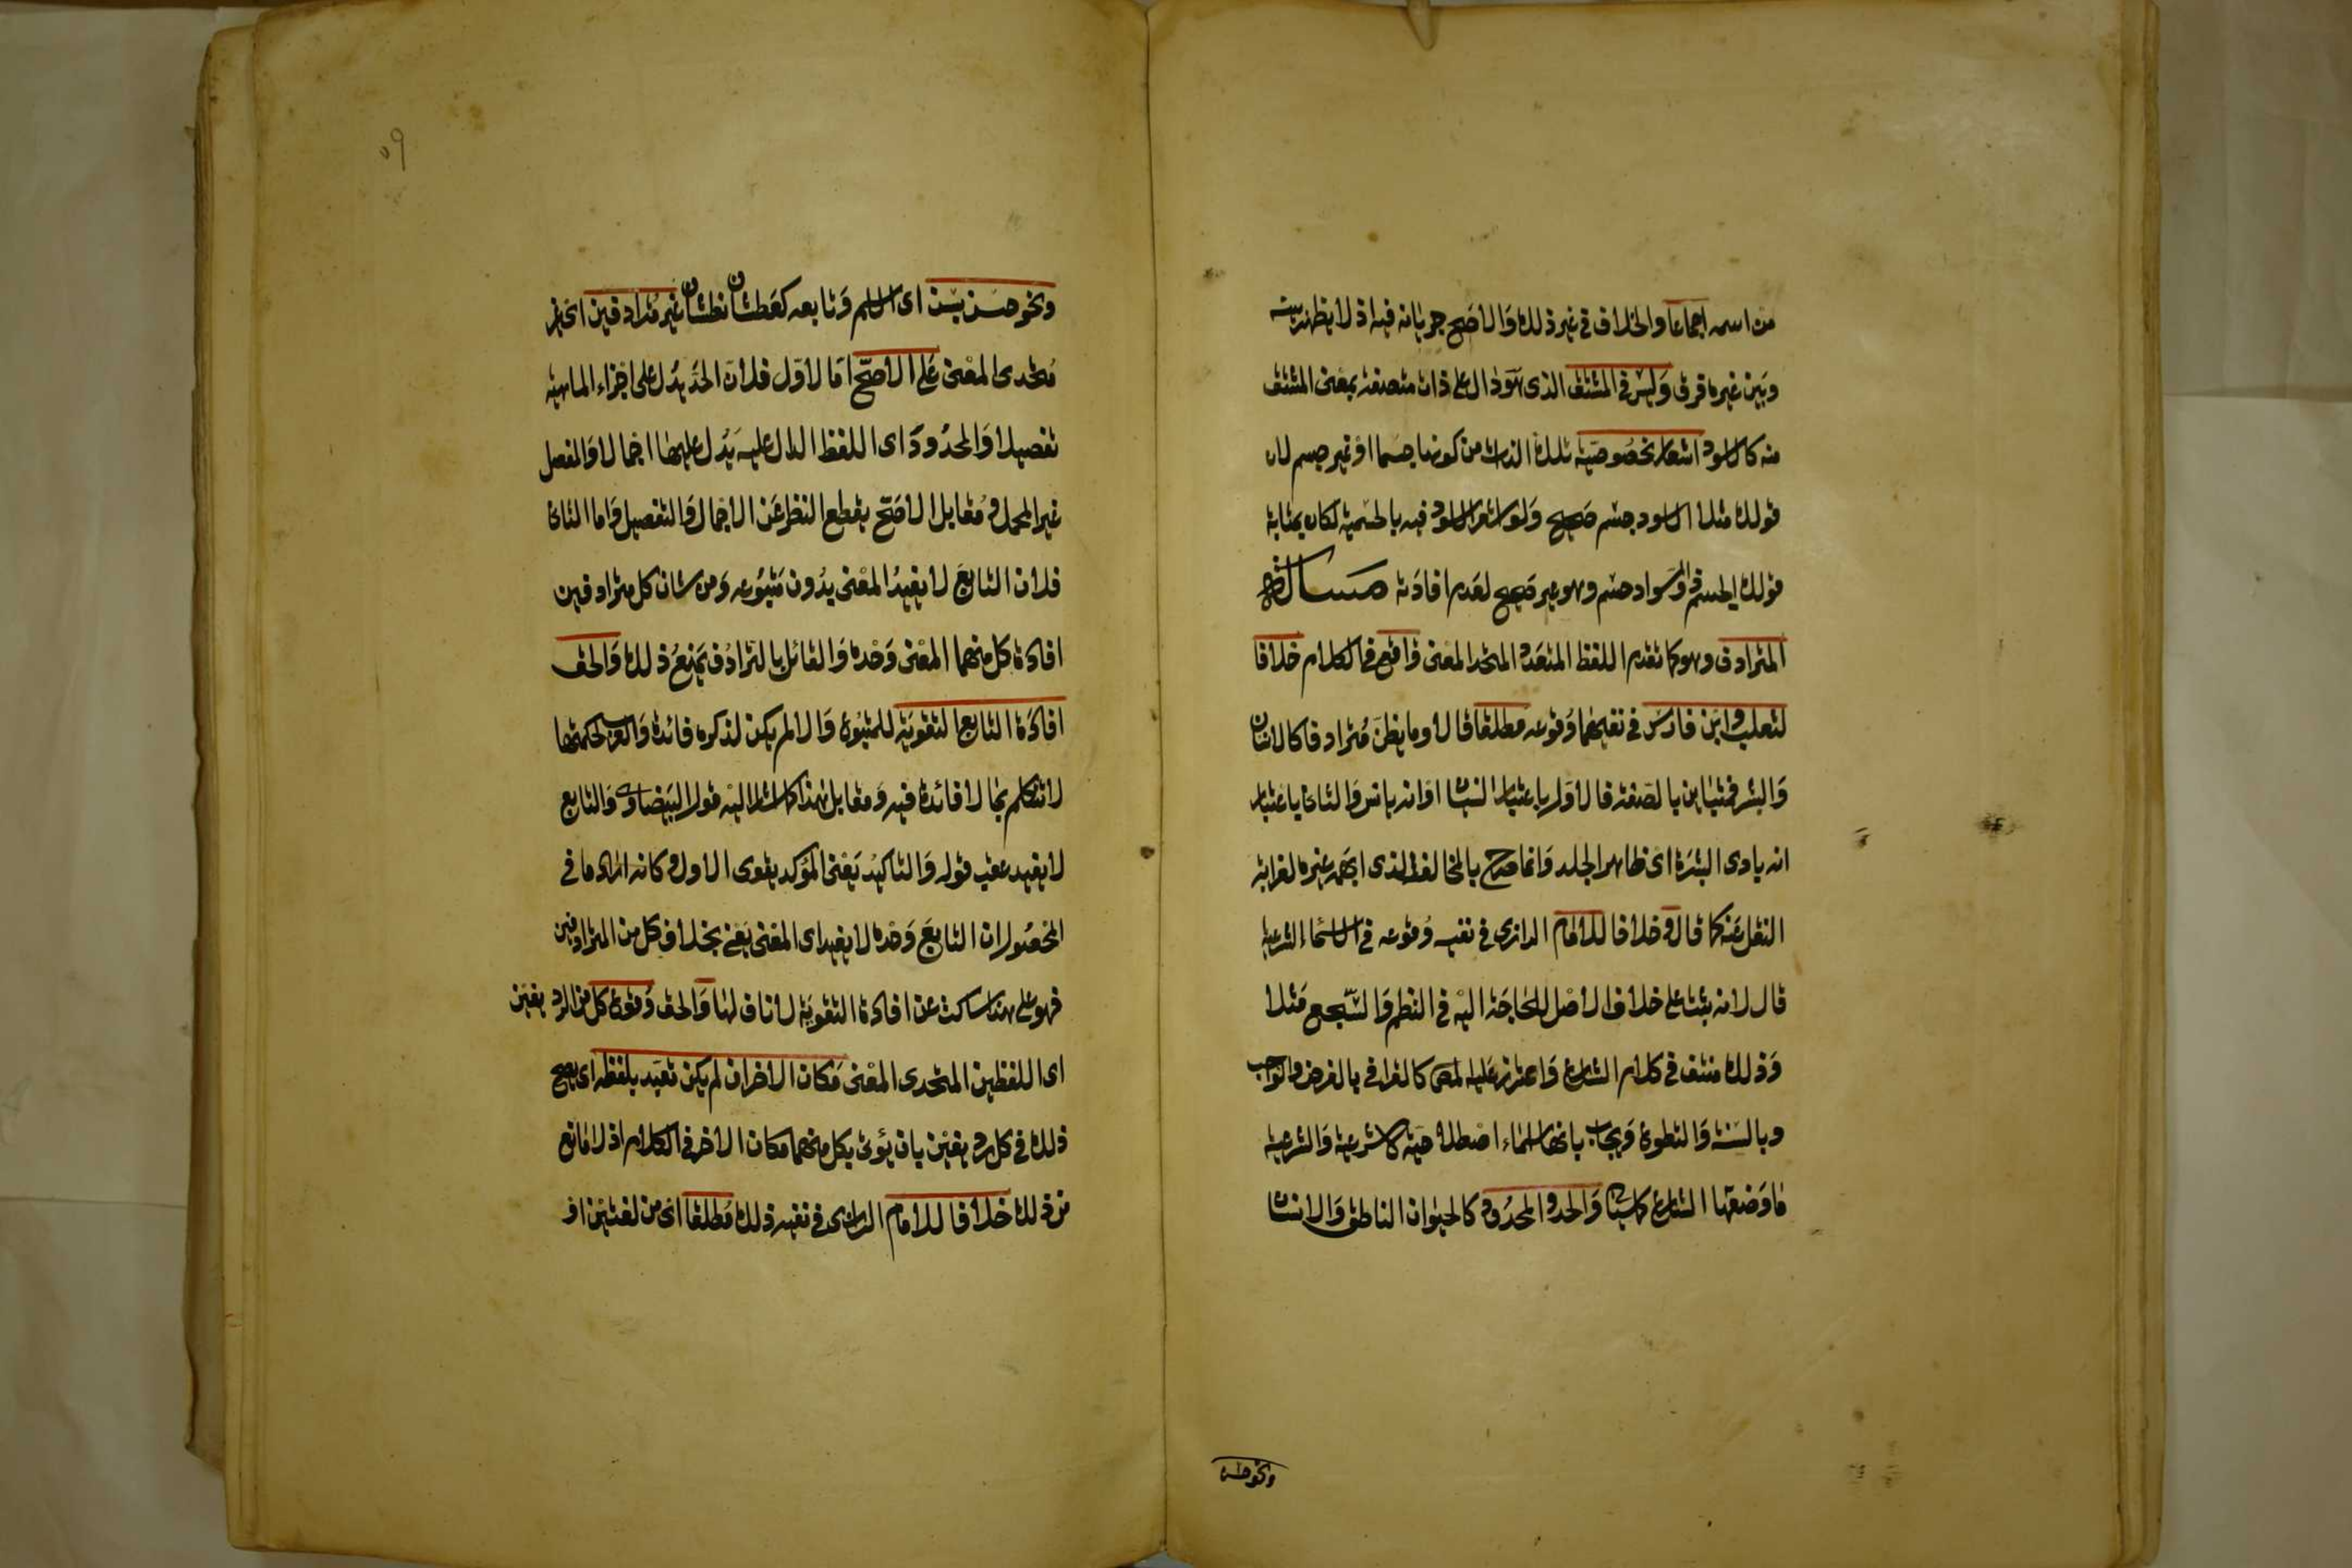 من اسمه اجماعا والخلاف في غير ذلك والاصح جريانه فيه اذ لا يظهر بينه
وبين غيره فرق وليس في المشتق الذي هو دال على ذات متصفة بمعنى المشتق
منه كالاسود اشعار بخصوصية تلك الذات من كونها جسما او غير جسم لان
قولك مثلا الاسود جسم صحيح ولو اشعر الاسود فيه بالجسمية لكان بمثابة
قولك الجسم ذو السواد جسم وهو غير صحيح لعدم افادته مسألة
المترادف وهو كما تقدم اللفظ المتعدد المتحد المعنى واقع في الكلام خلافا
لثعلب وابن فارس في نفيهما وقوعه مطلقا قالا وما يظن مترادفا كالانسان
والبشر فمتباين بالصفة فالاول باعتبار النسيان او انه يانس والثاني باعتبار
انه بادي البشرة اي ظاهر الجلد وانما صرح بالمخالف الذي ابهمه غيره لغرابة
النقل عنه كما قال وخلافا للامام الرازي في نفيه وقوعه في الاسماء الشرعية
قال لانه يثبت على خلاف الاصل للحاجة اليه في النظم والسجع مثلا
وذلك منتف في كلام الشارع واعترض عليه المص كالقرافي بالفرض والواجب
وبالسنة والتطوع ويجاب بانها اسماء اصطلاحية لا شرعية والشرعية
ما وضعها الشارع كما سياتي والحد والمحدود كالحيوان الناطق والانسان
ونحو حسن
٥٩
ونحو حسن بسن اي الاسم وتابعه كعطشان نطشان غير مترادفين اي غير
متحدي المعنى على الاصح اما الاول فلان الحد يدل على اجزاء الماهية
تفصيلا والمحدود اي اللفظ الدال عليه يدل عليها اجمالا والمفصل
غير المجمل ومقابل الاصح يقطع النظر عن الاجمال والتفصيل واما الثاني
فلان التابع لا يفيد المعنى بدون متبوعه ومن شان كل مترادفين
افادة كل منهما المعنى وحده والقائل بالترادف يمنع ذلك والحق
افادة التابع التقوية للمتبوع والا لم يكن لذكره فائدة والعرب لحكمتها
لا تتكلم بما لا فائدة فيه ومقابل هذا كما اشار اليه قول البيضاوي والتابع
لا يفيد عقب قوله والتاكيد يعني المؤكد يقوي الاول وكانه اراد ما في
المحصول ان التابع وحده لا يفيد اي المعنى يعني بخلاف كل من المترادفين
فهو على هذا ساكت عن افادة التقوية لا ناف لها والحق وقوع كل من الرديفين
اي اللفظين المتحدي المعنى مكان الاخر ان لم يكن تعبد بلفظه اي يصح
ذلك في كل رديفين بان يؤتى بكل منهما مكان الاخر في الكلام اذ لا مانع
من ذلك خلافا للامام الرازي في نفيه ذلك مطلقا اي من لغتين او